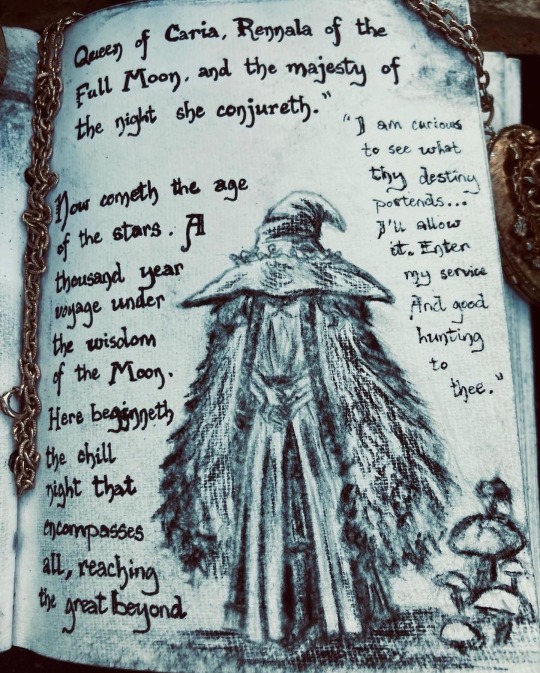 Queen of Caria, Rennala of the
Full Moon, and the majesty of
the night she conjureth."
"I am curious
to see what
thy destiny
portends...
I'll allow
it. Enter
my service
And good
hunting
to
thee."
Now cometh the age
of the stars. A
thousand year
voyage under
the wisdom
of the Moon.
Here beginneth
the chill
night that
encompasses
all, reaching
the great beyond